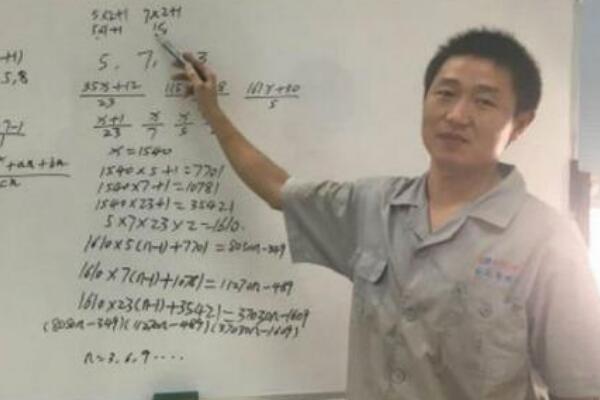 5×2+1 7×2+1
5×1+1 15
+1)
5,8
5, 7, 3
35x+12 115 8 161x+30
23 5
x+1 x x
23 7 5
7-1
+an+bn
cn
x=1540
1540×5+1=7701
1540×7+1=10781
1540×23+1=35421
5×7×23×2=1610
1610×5(n-1)+7701=8050n-349
1610×7(n-1)+10781=11270n-489
1610×23(n-1)+35421=37030n-1609
(8050n-349)(11270n-489)(37030n-1609)
n=3,6,9····